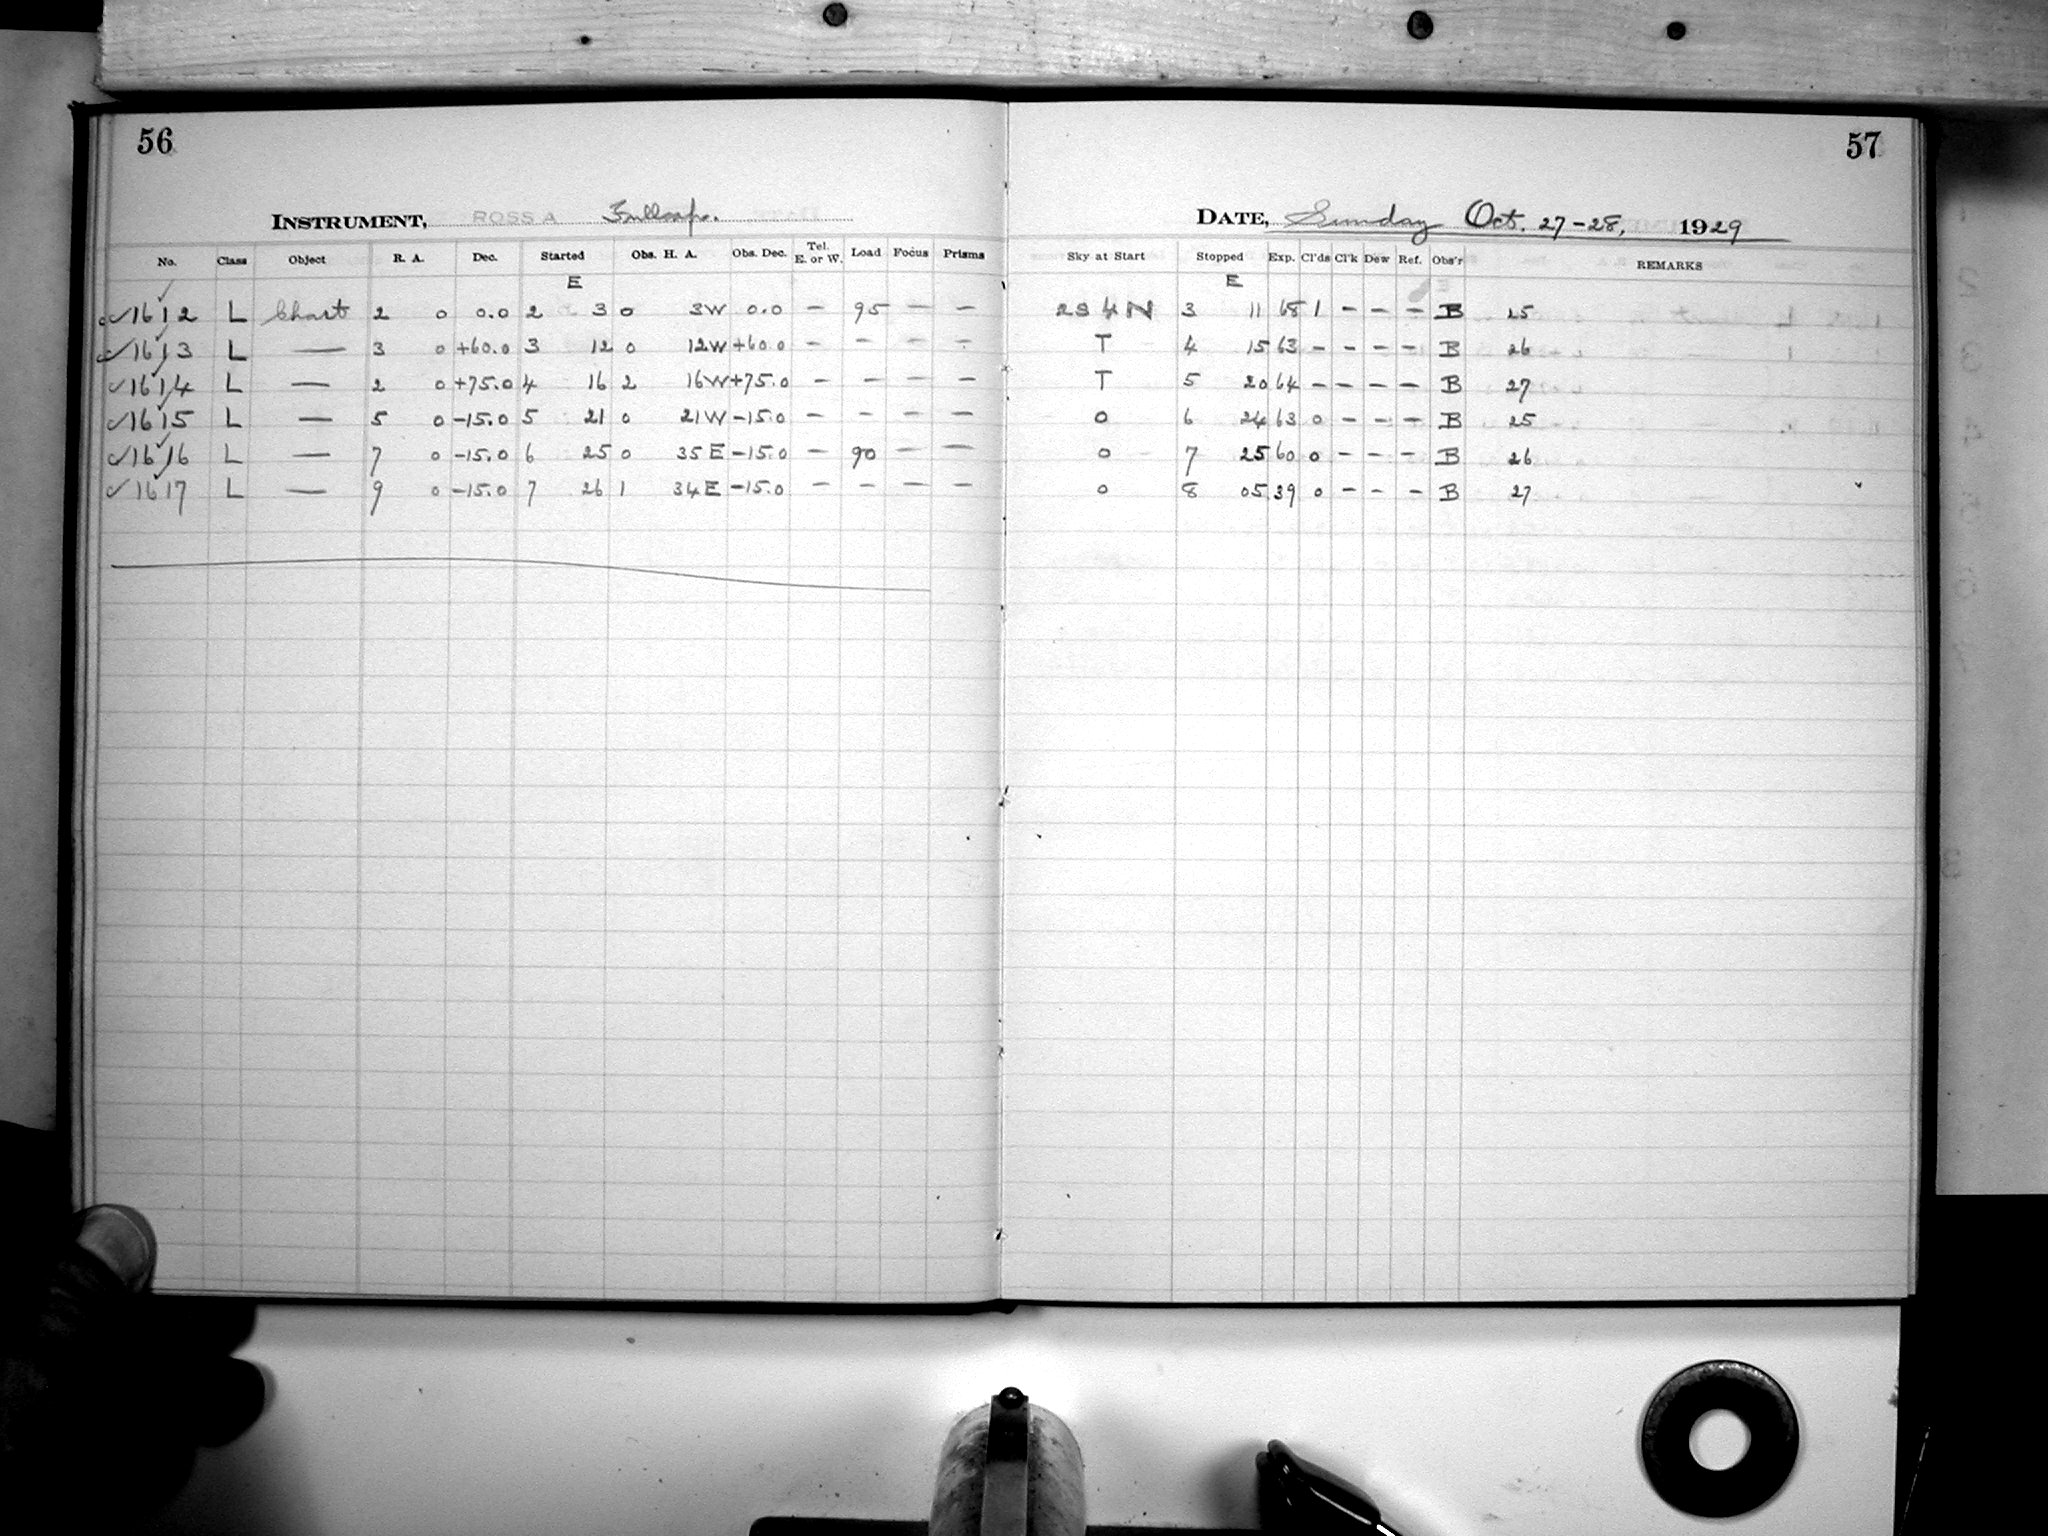 56
57
INSTRUMENT, ROSS A
DATE, Sunday Oct. 27-28, 1929
No. Class Object R. A. Dec. Started Obs. H. A. Obs. Dec. Tel. E. or W. Load Focus Prisms Sky at Start Stopped Exp. Cl'ds Cl'k Dew Ref. Obs'r REMARKS
E E
✓1612 L Chart 2 0 0.0 2 3 0 3W 0.0 – 95 – – 234N 3 11 68 1 – – – B 25
✓1613 L — 3 0 +60.0 3 12 0 12W +60.0 – – – – T 4 15 63 – – – – B 26
✓1614 L — 2 0 +75.0 4 16 2 16W +75.0 – – – – T 5 20 64 – – – – B 27
✓1615 L — 5 0 -15.0 5 21 0 21W -15.0 – – – – 0 6 24 63 0 – – – B 25
✓1616 L — 7 0 -15.0 6 25 0 35E -15.0 – 90 – – 0 7 25 60 0 – – – B 26
✓1617 L — 9 0 -15.0 7 26 1 34E -15.0 – – – – 0 8 05 39 0 – – – B 27